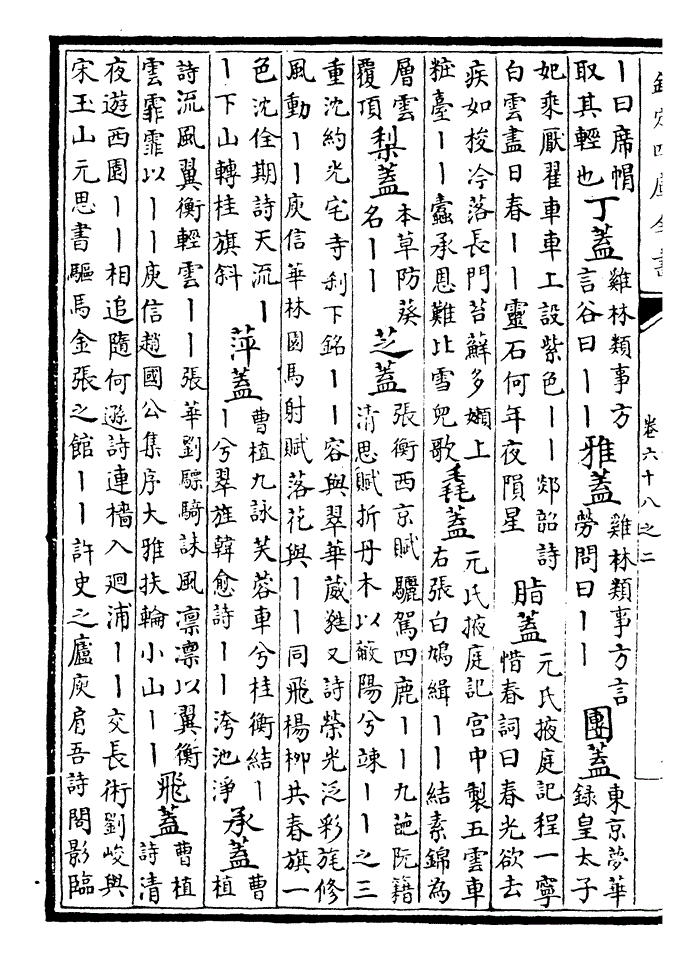 欽定四庫全書
卷六十八之二
丨曰席帽
取其輕也
丁蓋
雞林類事方
言谷曰丨丨
雅蓋
雞林類事方言
勞問曰丨丨
團蓋
東京夢華
錄皇太子
妃乘厭翟車車上設紫色丨丨郯韶詩
白雲盡日春丨丨靈石何年夜隕星
脂蓋
元氏掖庭記程一寧
惜春詞曰春光欲去
疾如梭冷落長門苔蘚多嬾上
粧臺丨丨蠧承恩難比雪兒歌
毳蓋
元氏掖庭記宮中製五雲車
右張白鳩緝丨丨結素錦為
層雲
覆頂
梨蓋
本草防葵
名丨丨
芝蓋
張衡西京賦驪駕四鹿丨丨九葩阮籍
清思賦折丹木以蔽陽兮竦丨丨之三
重沈約光宅寺刹下銘丨丨容與翠華葳蕤又詩榮光泛彩旄修
風動丨丨庾信華林園馬射賦落花與丨丨同飛楊柳共春旗一
色沈佺期詩天流丨
丨下山轉桂旗斜
萍蓋
曹植九詠芙蓉車兮桂衡結丨
丨兮翠旌韓愈詩丨丨涔池淨
承蓋
曹
植
詩流風翼衡輕雲丨丨張華劉驃騎誄風凛凛以翼衡
雲霏霏以丨丨庾信趙國公集序大雅扶輪小山丨丨
飛蓋
曹植
詩清
夜遊西園丨丨相追隨何遜詩連檣入迴浦丨丨交長術劉峻與
宋玉山元思書驅馬金張之館丨丨許史之廬庾肩吾詩閣影臨